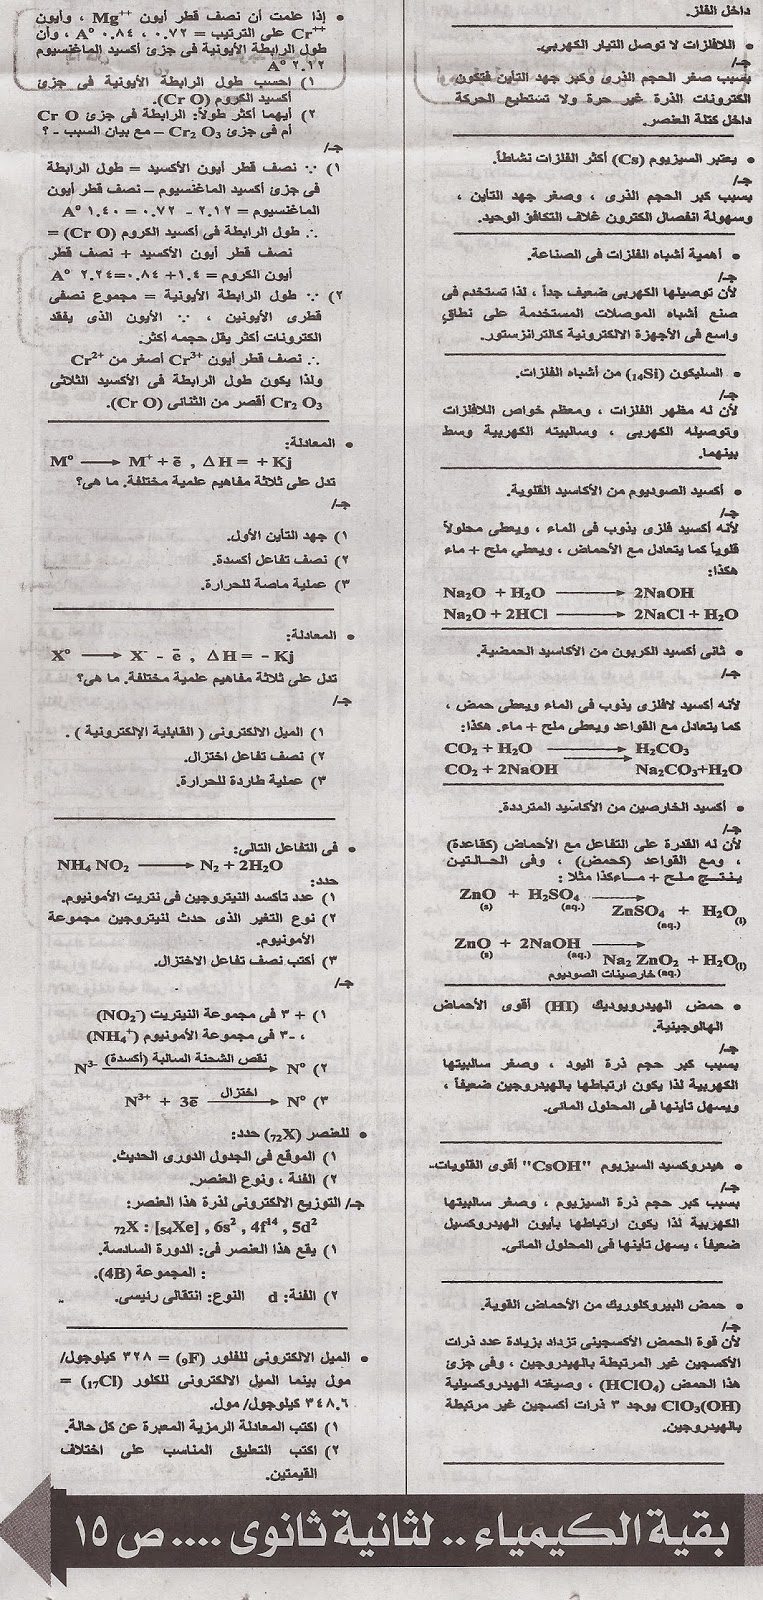 داخل الفلز.
• اللافلزات لا توصل التيار الكهربى.
جـ/
بسبب صغر الحجم الذرى وكبر جهد التأين فتكون
الكترونات الذرة غير حرة ولا تستطيع الحركة
داخل كتلة العنصر.
• يعتبر السيزيوم (Cs) أكثر الفلزات نشاطاً.
جـ/
بسبب كبر الحجم الذرى ، وصغر جهد التأين ،
وسهولة انفصال الكترون غلاف التكافؤ الوحيد.
• أهمية أشباه الفلزات فى الصناعة.
جـ/
لأن توصيلها الكهربى ضعيف جداً ، لذا تستخدم فى
صنع أشباه الموصلات المستخدمة على نطاق
واسع فى الأجهزة الالكترونية كالترانزستور.
• السليكون (₁₄Si) من أشباه الفلزات.
جـ/
لأن له مظهر الفلزات ، ومعظم خواص اللافلزات
وتوصيله الكهربى ، وسالبيته الكهربية وسط
بينهما.
• أكسيد الصوديوم من الأكاسيد القلوية.
جـ/
لأنه أكسيد فلزى يذوب فى الماء ، ويعطى محلولاً
قلوياً كما يتعادل مع الأحماض ، ويعطي ملح + ماء
هكذا:
Na₂O + H₂O ⟶ 2NaOH
Na₂O + 2HCl ⟶ 2NaCl + H₂O
• ثانى أكسيد الكربون من الأكاسيد الحمضية.
جـ/
لأنه أكسيد لافلزى يذوب فى الماء ويعطى حمض ،
كما يتعادل مع القواعد ويعطى ملح + ماء. هكذا:
CO₂ + H₂O ⟶ H₂CO₃
CO₂ + 2NaOH ⟶ Na₂CO₃+H₂O
• أكسيد الخارصين من الأكاسيد المترددة.
جـ/
لأن له القدرة على التفاعل مع الأحماض (كقاعدة)
، ومع القواعد (كحمض) ، وفى الحالـتين
ينتـج ملـح + مـاء كذا مثلا :
ZnO (s) + H₂SO₄ (aq.) ⟶
ZnSO₄ (aq.) + H₂O(l)
ZnO (s) + 2NaOH (aq.) ⟶
Na₂ ZnO₂ (aq.) + H₂O(l)
خارصينات الصوديوم
• حمض الهيدرويوديك (HI) أقوى الأحماض
الهالوجينية.
جـ/
بسبب كبر حجم ذرة اليود ، وصغر سالبيتها
الكهربية لذا يكون ارتباطها بالهيدروجين ضعيفاً ،
ويسهل تأينها فى المحلول المائى.
• هيدروكسيد السيزيوم "CsOH" أقوى القلويات.
جـ/
بسبب كبر حجم ذرة السيزيوم ، وصغر سالبيتها
الكهربية لذا يكون ارتباطها بأيون الهيدروكسيل
ضعيفاً ، يسهل تأينها فى المحلول المائى.
• حمض البيروكلوريك من الأحماض القوية.
جـ/
لأن قوة الحمض الأكسجينى تزداد بزيادة عدد ذرات
الأكسجين غير المرتبطة بالهيدروجين ، وفى جزئ
هذا الحمض (HClO₄) ، وصيغته الهيدروكسيلية
ClO₃(OH) يوجد ٣ ذرات أكسجين غير مرتبطة
بالهيدروجين.
• إذا علمت أن نصف قطر أيون Mg⁺⁺ ، وأيون
Cr⁺⁺ على الترتيب = ٠.٧٢ ، ٠.٨٤ A° ، وأن
طول الرابطة الأيونية فى جزئ أكسيد الماغنسيوم
٢.١٢ A°
١) احسب طول الرابطة الأيونية فى جزئ
أكسيد الكروم (Cr O).
٢) أيهما أكثر طولاً: الرابطة فى جزئ Cr O
أم فى جزئ Cr₂ O₃ – مع بيان السبب - ؟
جـ/
١) ∵ نصف قطر أيون الأكسيد = طول الرابطة
فى جزئ أكسيد الماغنسيوم – نصف قطر أيون
الماغنسيوم = ٢.١٢ - ٠.٧٢ = ١.٤٠ A°
∴ طول الرابطة فى أكسيد الكروم (Cr O) =
نصف قطر أيون الأكسيد + نصف قطر
أيون الكروم = ١.٤+ ٠.٨٤=٢.٢٤ A°
٢) ∵ طول الرابطة الأيونية = مجموع نصفى
قطرى الأيونين ، ∵ الأيون الذى يفقد
الكترونات أكثر يقل حجمه أكثر.
∴ نصف قطر أيون Cr³⁺ أصغر من Cr²⁺
ولذا يكون طول الرابطة فى الأكسيد الثلاثى
Cr₂ O₃ أقصر من الثنائى (Cr O).
• المعادلة:
M° ⟶ M⁺ + ē , ΔH = + Kj
تدل على ثلاثة مفاهيم علمية مختلفة. ما هى؟
جـ/
١) جهد التأين الأول.
٢) نصف تفاعل أكسدة.
٣) عملية ماصة للحرارة.
• المعادلة:
X° ⟶ X⁻ - ē , ΔH = - Kj
تدل على ثلاثة مفاهيم علمية مختلفة. ما هى؟
جـ/
١) الميل الالكترونى ( القابلية الإلكترونية ) .
٢) نصف تفاعل اختزال.
٣) عملية طاردة للحرارة.
• فى التفاعل التالى:
NH₄ NO₂ ⟶ N₂ + 2H₂O
حدد:
١) عدد تأكسد النيتروجين فى نتريت الأمونيوم.
٢) نوع التغير الذى حدث لنيتروجين مجموعة
الأمونيوم.
٣) أكتب نصف تفاعل الاختزال.
جـ/
١) + ٣ فى مجموعة النيتريت (NO₂⁻)
، -٣ فى مجموعة الأمونيوم (NH₄⁺)
٢) N³⁻ نقص الشحنة السالبة (أكسدة) ⟶ N°
٣) N³⁺ + 3ē اختزال ⟶ N°
• للعنصر (₇₂X) حدد:
١) الموقع فى الجدول الدورى الحديث.
٢) الفئة ، ونوع العنصر.
جـ/ التوزيع الالكترونى لذرة هذا العنصر:
₇₂X : [₅₄Xe] , 6s² , 4f¹⁴ , 5d²
١) يقع هذا العنصر فى: الدورة السادسة.
: المجموعة (4B).
٢) الفئة: d النوع: انتقالى رئيسى.
• الميل الالكترونى للفلور (₉F) = ٣٢٨ كيلوجول/
مول بينما الميل الالكترونى للكلور (₁₇Cl) =
٣٤٨.٦ كيلوجول/ مول.
١) اكتب المعادلة الرمزية المعبرة عن كل حالة.
٢) اكتب التعليق المناسب على اختلاف
القيمتين.
بقية الكيمياء .. لثانية ثانوى .... ص ١٥